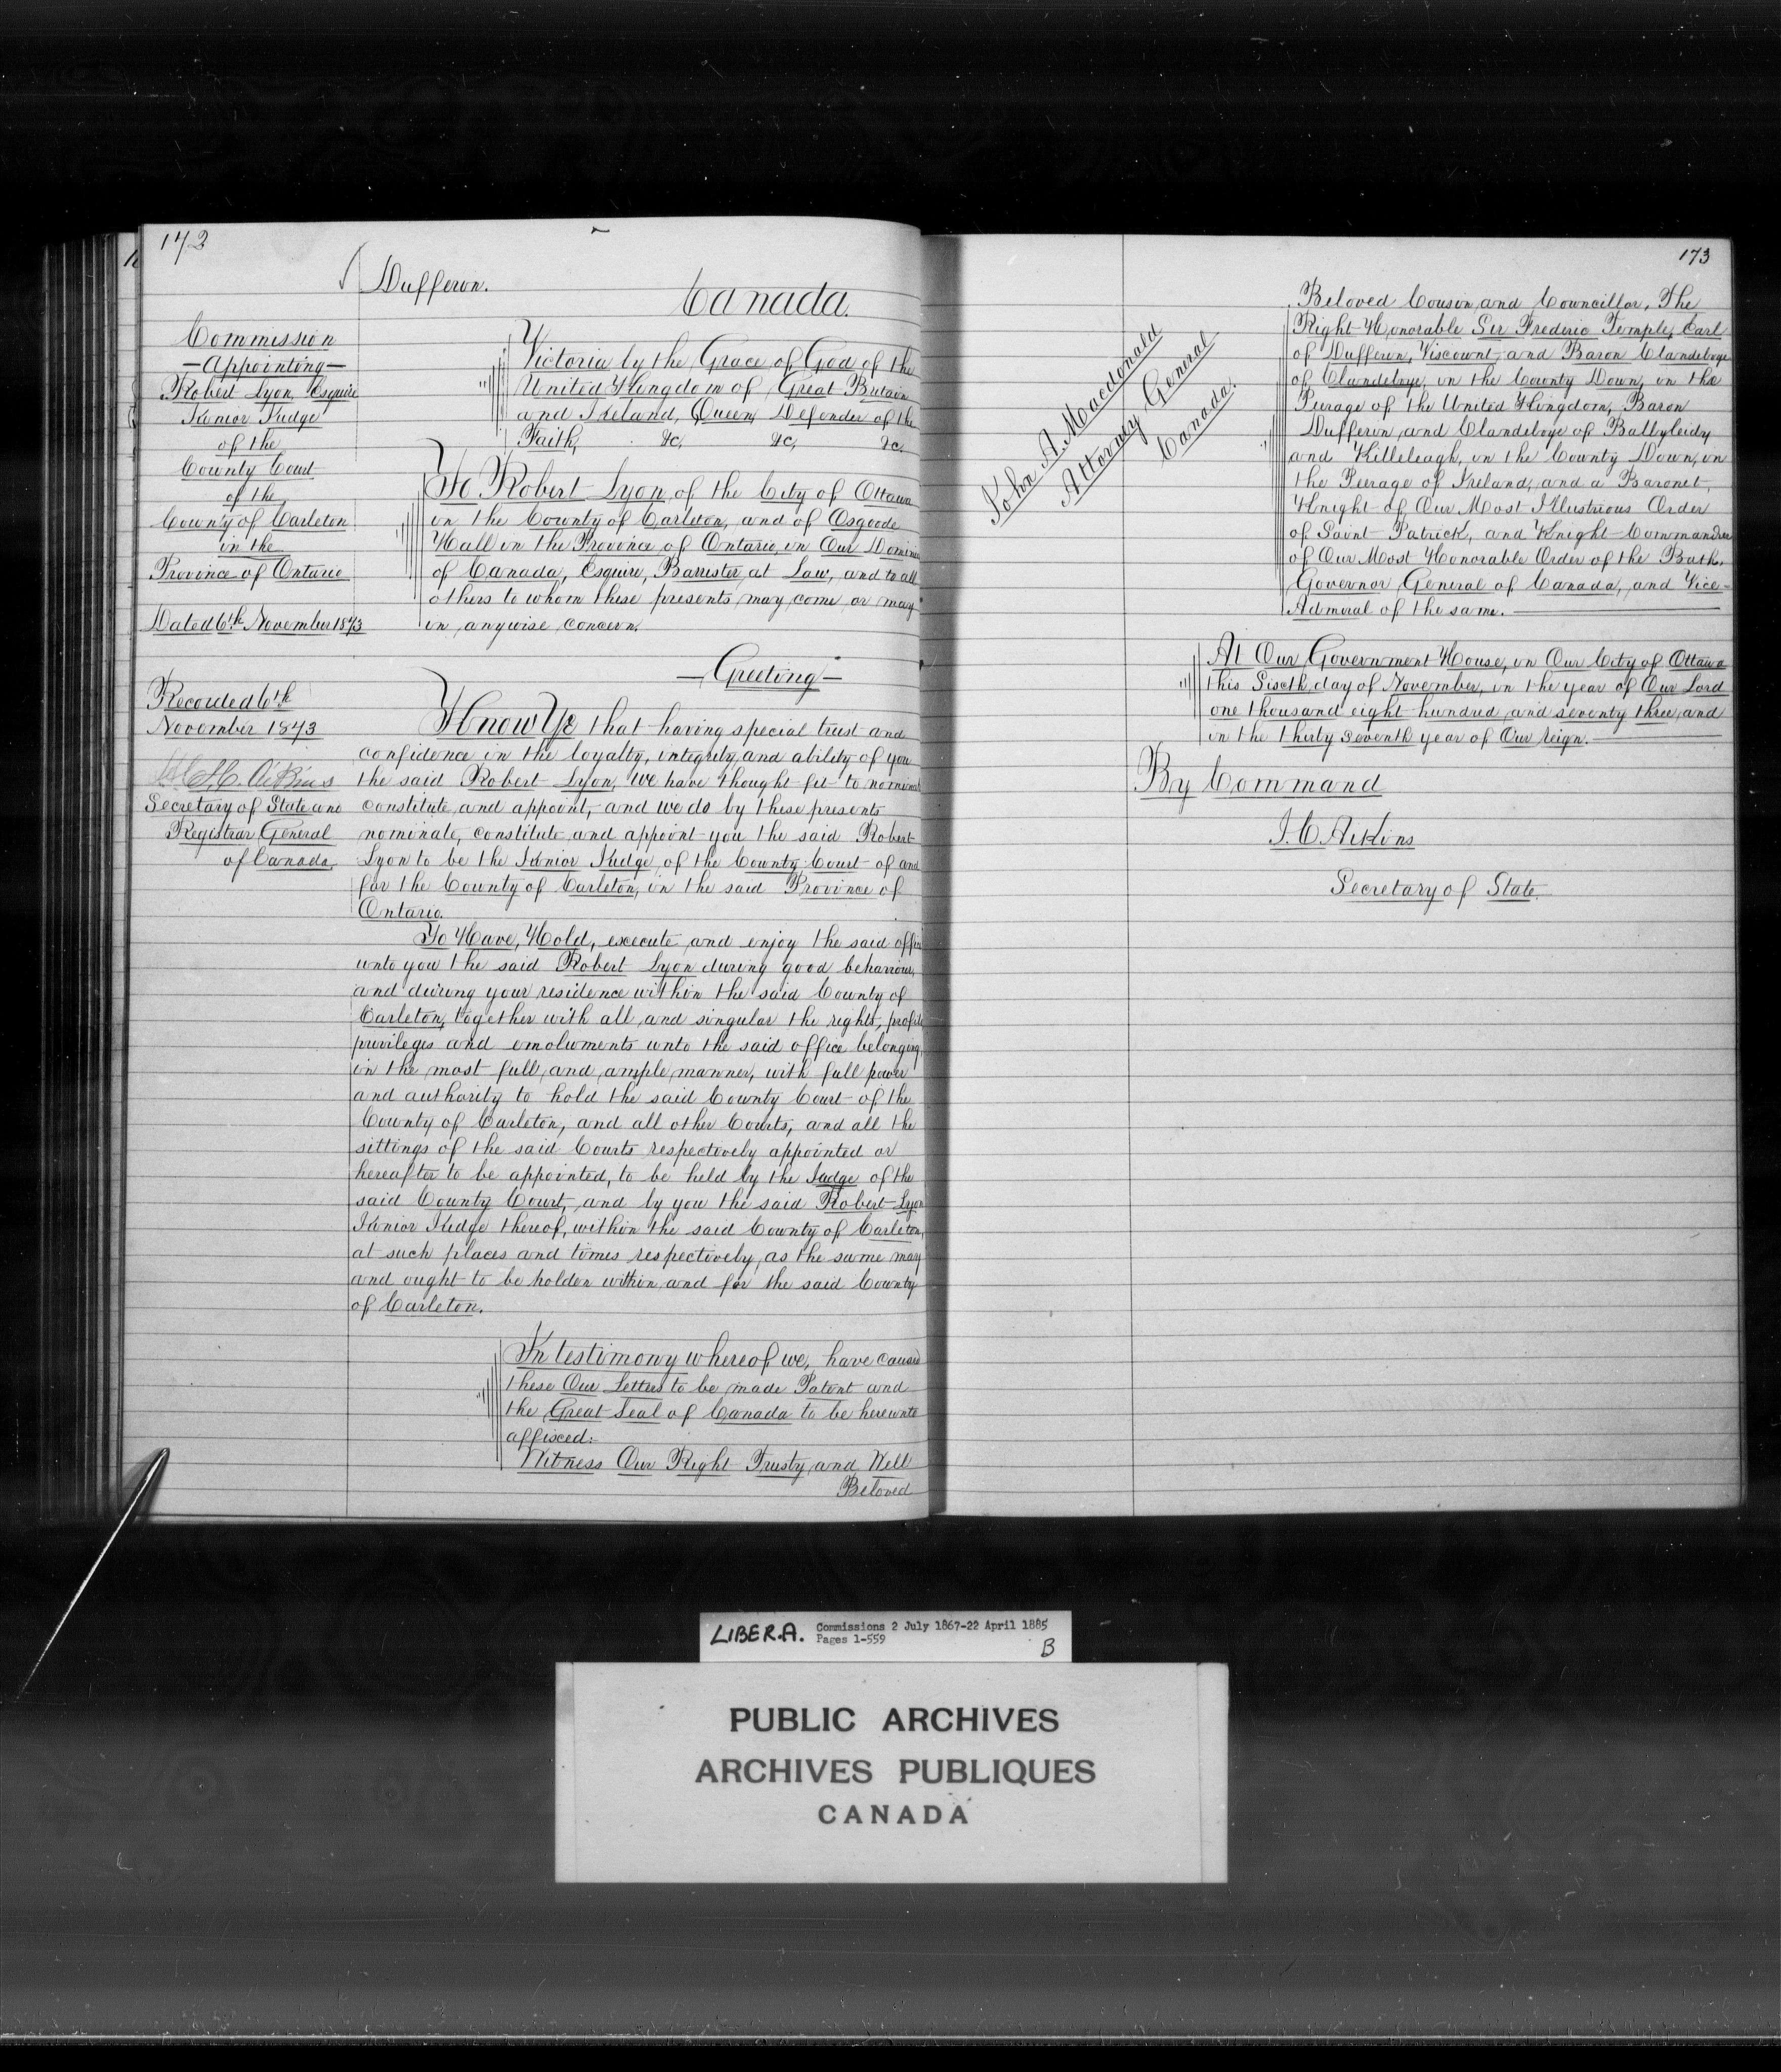 172
Dufferin.
Canada.
Commission
—Appointing—
Robert Lyon, Esquire
Junior Judge
of the
County Court
of the
County of Carleton
in the
Province of Ontario
Dated 6th November 1873
Recorded 6th
November 1873
J.C. Aikins
Secretary of State and
Registrar General
of Canada.
Victoria by the Grace of God of the
United Kingdom of Great Britain
and Ireland, Queen, Defender of the
Faith, &c, &c, &c.
To Robert Lyon, of the City of Ottawa
in the County of Carleton, and of Osgoode
Hall in the Province of Ontario, in Our Dominion
of Canada, Esquire, Barrister at Law, and to all
others to whom these presents may come or may
in anywise concern.
—Greeting—
Know Ye that having special trust and
confidence in the loyalty, integrity and ability of you
the said Robert Lyon, we have thought fit to nominate
constitute and appoint, and we do by these presents
nominate, constitute and appoint you the said Robert
Lyon to be the Junior Judge of the County Court of and
for the County of Carleton, in the said Province of
Ontario.
To Have, Hold, execute and enjoy the said office
unto you the said Robert Lyon during good behaviour,
and during your residence within the said County of
Carleton, together with all and singular the rights, profits
privileges and emoluments unto the said office belonging,
in the most full and ample manner, with full power
and authority to hold the said County Court of the
County of Carleton, and all other Courts, and all the
sittings of the said Courts respectively appointed or
hereafter to be appointed, to be held by the Judge of the
said County Court, and by you the said Robert Lyon
Junior Judge thereof, within the said County of Carleton,
at such places and times respectively, as the same may
and ought to be holden within and for the said County
of Carleton.
In testimony whereof we, have caused
these Our Letters to be made Patent and
the Great Seal of Canada to be hereunto
affixed:
Witness Our Right Trusty and Well
Beloved
173
John A. Macdonald
Attorney General
Canada.
Beloved Cousin and Councillor, The
Right Honorable Sir Frederic Temple, Earl
of Dufferin, Viscount and Baron Clandeboye
of Clandeboye, in the County Down, in the
Peerage of the United Kingdom, Baron
Dufferin and Clandeboye of Ballyleidy
and Killeleagh, in the County Down, in
the Peerage of Ireland, and a Baronet,
Knight of Our Most Illustrious Order
of Saint Patrick, and Knight Commander
of Our Most Honorable Order of the Bath.
Governor General of Canada, and Vice-
Admiral of the same.
At Our Government House, in Our City of Ottawa
this Sixth day of November, in the year of Our Lord
one thousand eight hundred and seventy three, and
in the thirty seventh year of Our reign.
By Command
J.C. Aikins
Secretary of State.
LIBER.A. Commissions 2 July 1867-22 April 1885
Pages 1-559
B
PUBLIC ARCHIVES
ARCHIVES PUBLIQUES
CANADA